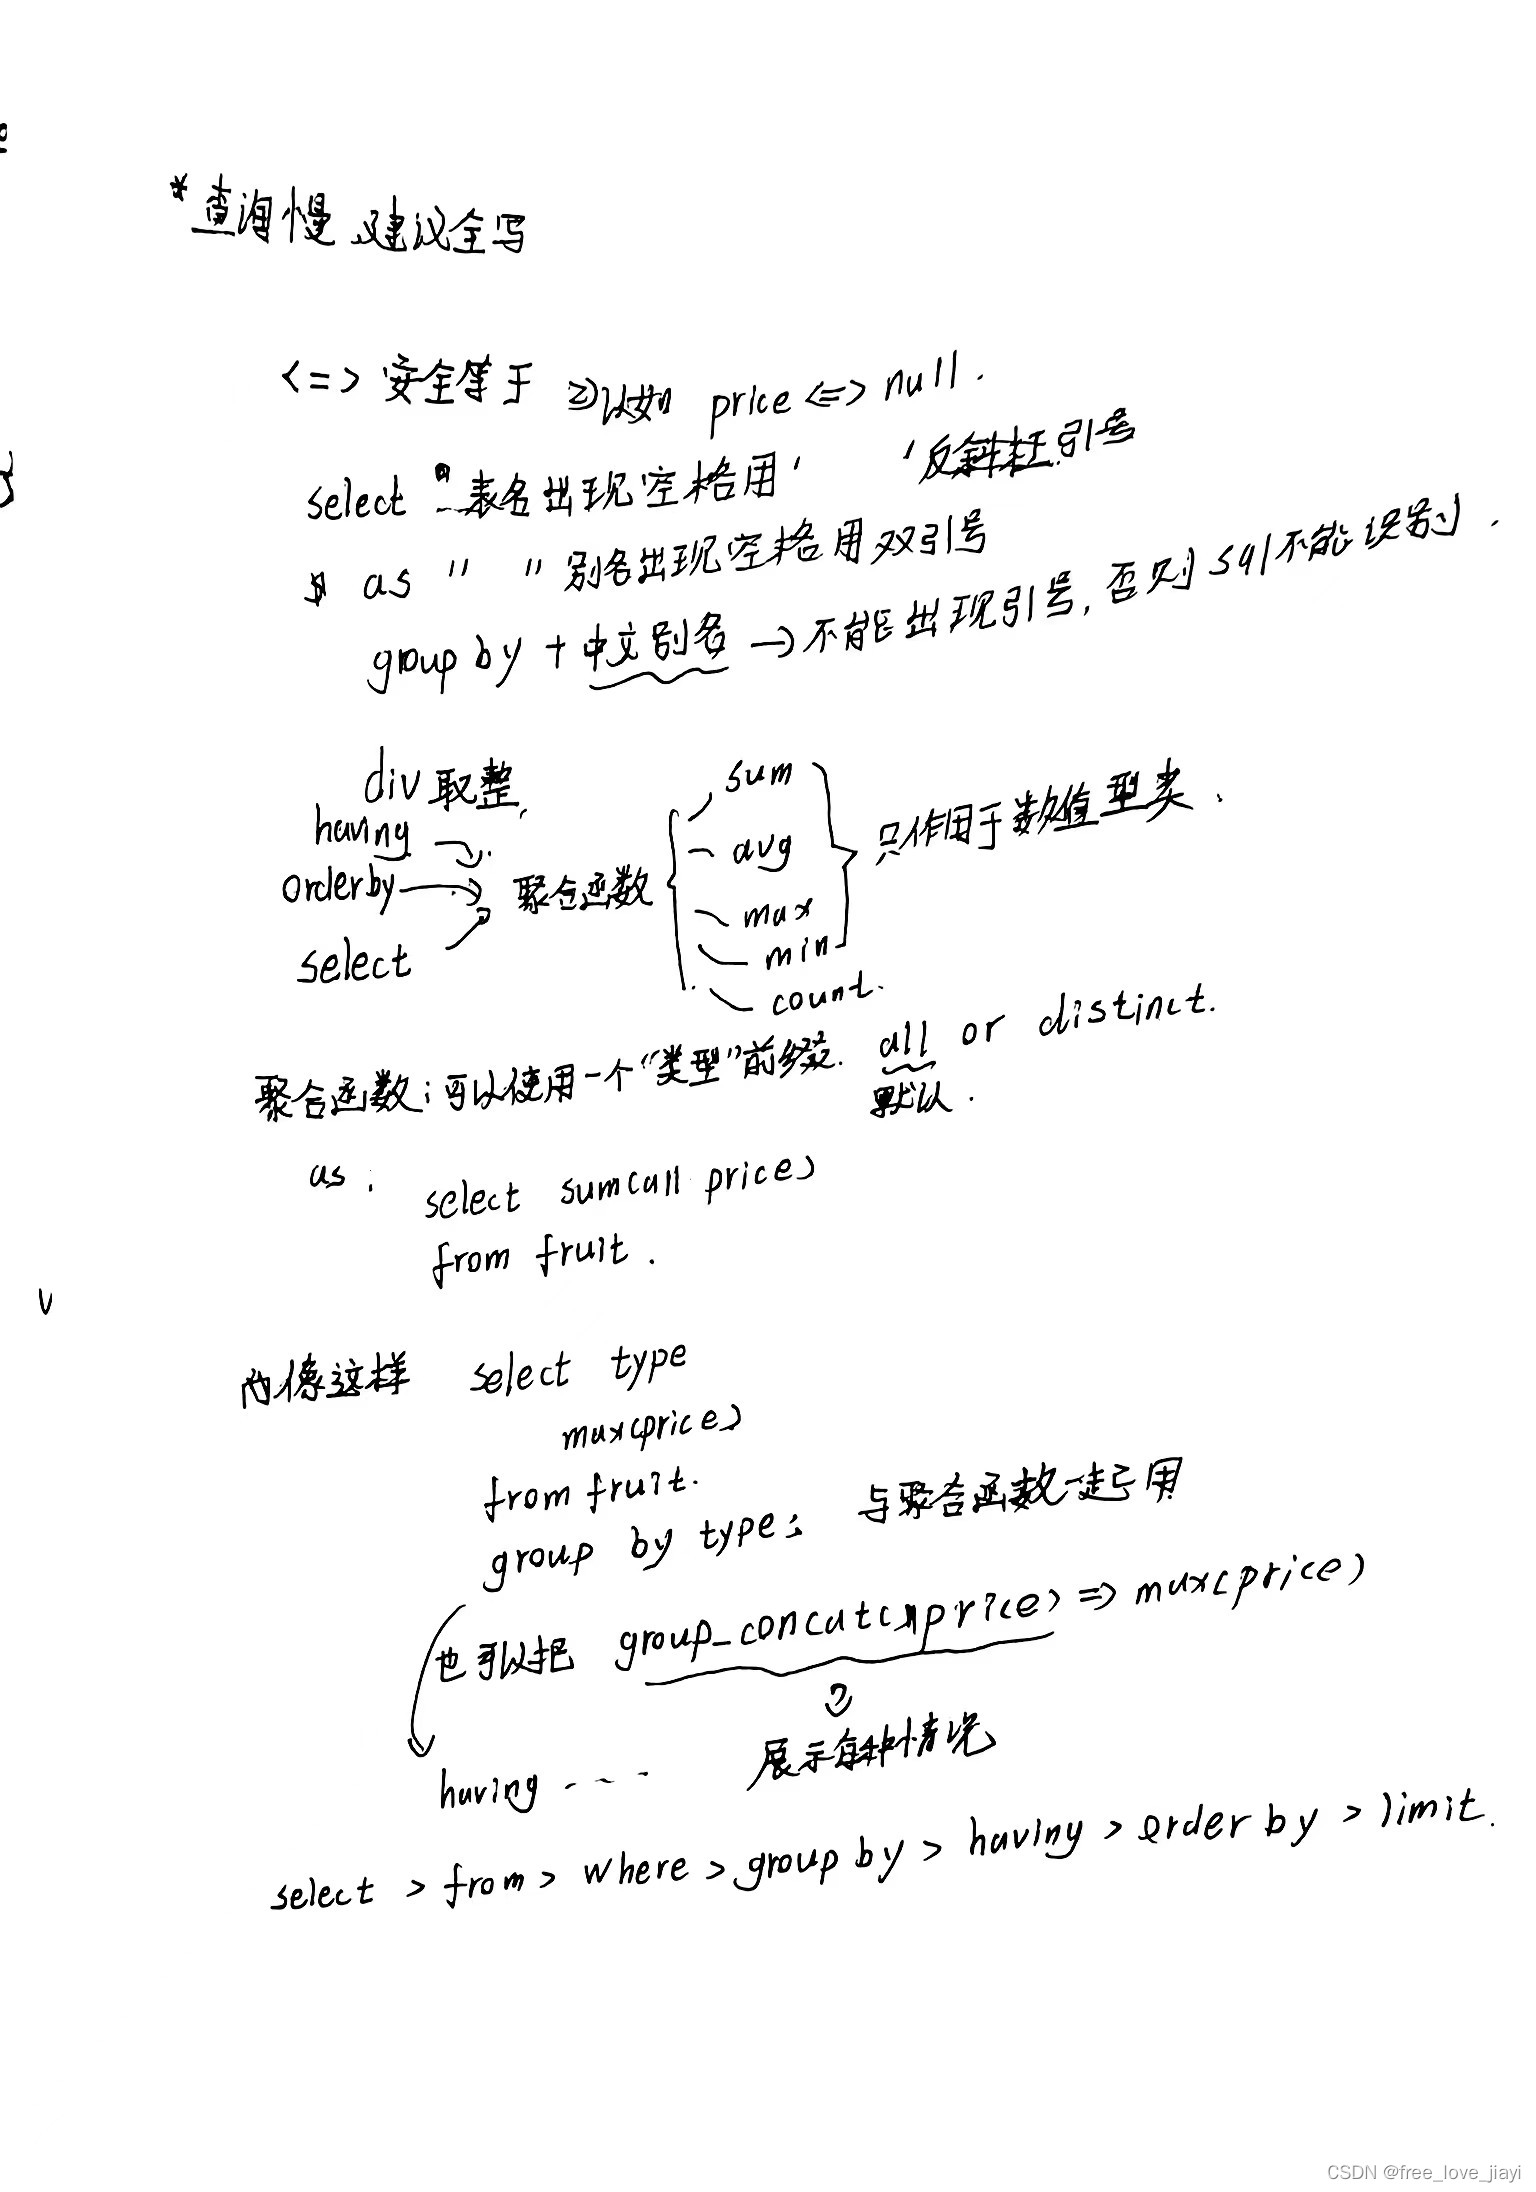 *查询慢 建议全写
<=> 安全等于 如 price <=> null.
select 表名出现空格用' '反斜杠引号
as " " 别名出现空格用双引号
group by + 中文别名 → 不能出现引号, 否则sql不能识别.
div 取整,
having
order by
select
聚合函数
sum
avg
max
min
count.
只作用于数值型类.
聚合函数: 可以使用一个"类型"前缀. all or distinct.
默认.
as: select sum(all price)
from fruit.
像这样 select type
max(price)
from fruit.
group by type; 与聚合函数一起用
也可以把 group_concat(price) => max(price)
展示每种情况
having ----
select > from > where > group by > having > order by > limit.
CSDN @free_love_jiayi